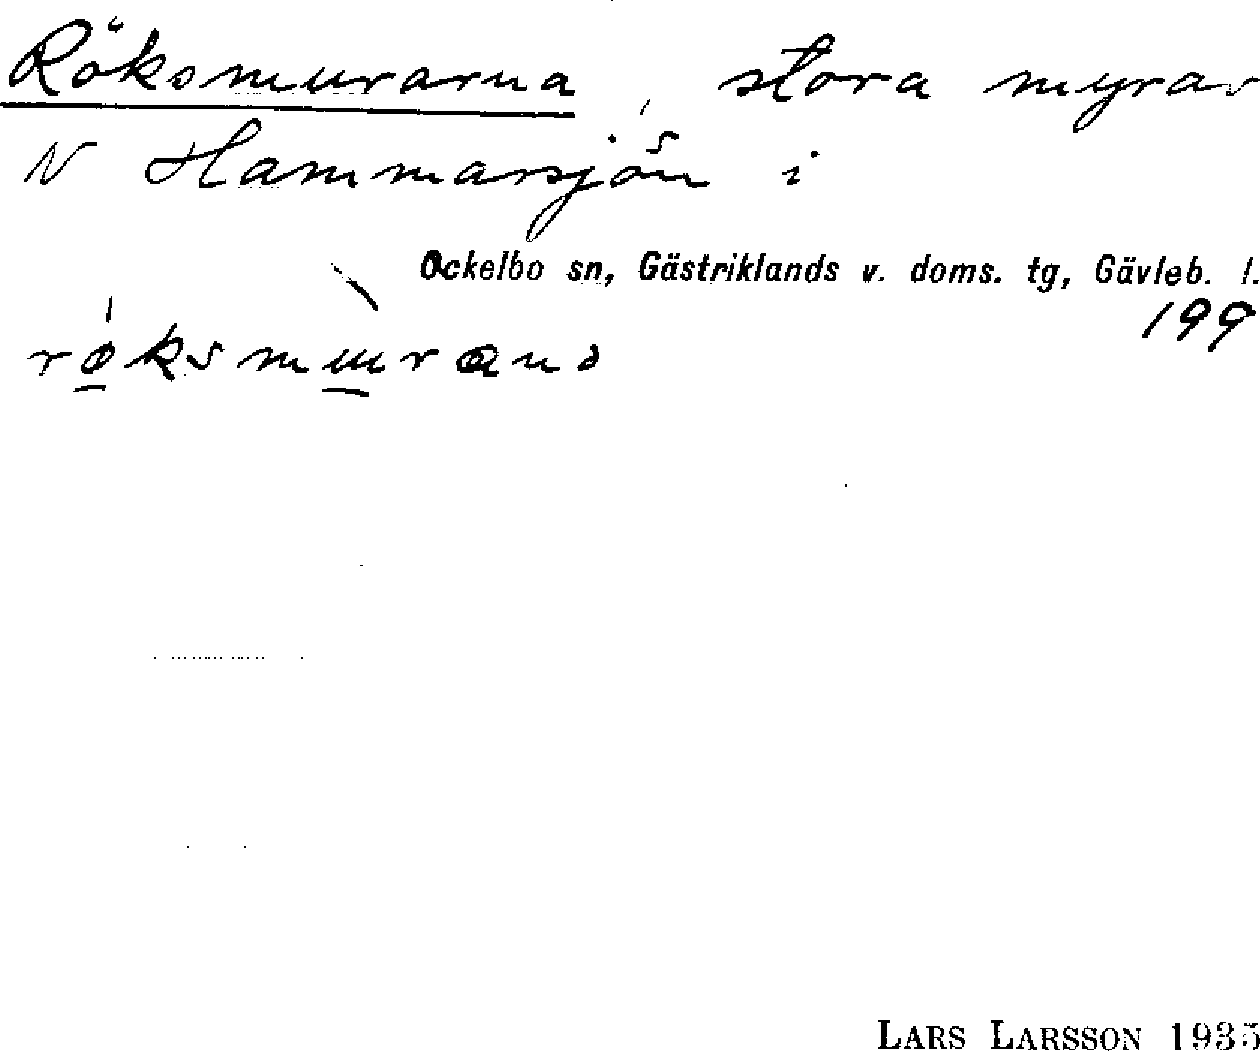 Röksmurarna, stora myrar
N Hammarsjön i
Ockelbo sn, Gästriklands v. doms. tg, Gävleb. l.
199
röksmurana
LARS LARSSON 1935